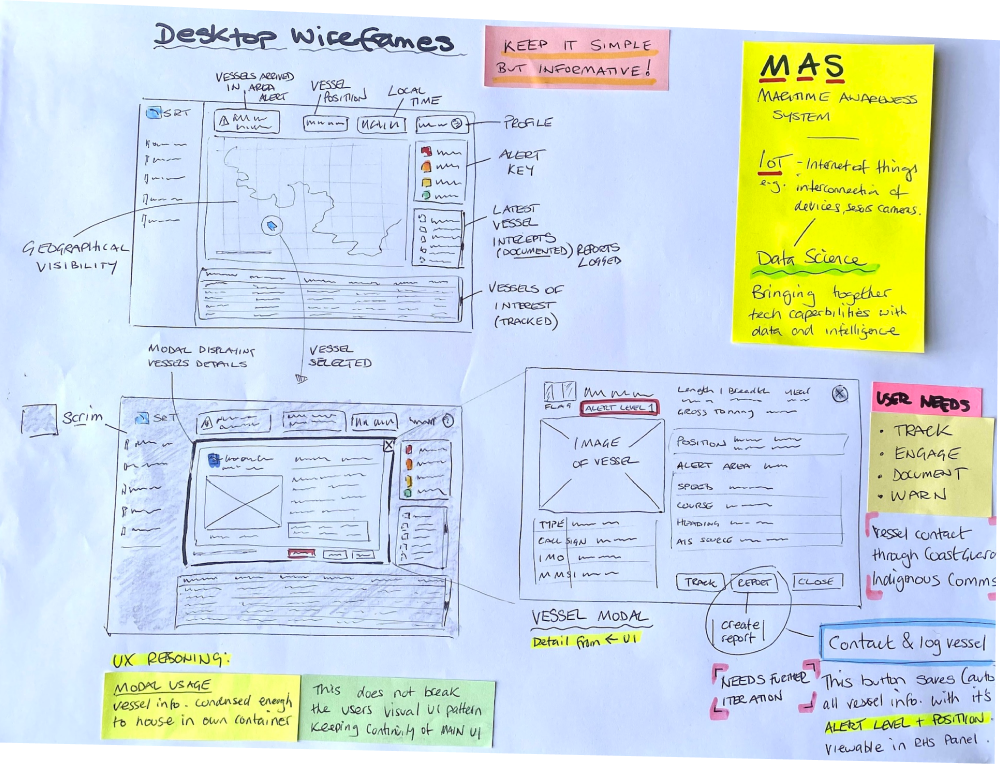 Desktop Wireframes
KEEP IT SIMPLE
BUT INFORMATIVE!
MAS
MARITIME AWARENESS
SYSTEM
IoT - Internet of things
e.g. interconnection of
devices,
camers.
Data Science
Bringing together
tech caperbilities with
data and intelligence
VESSELS ARRIVED
IN AREA
ALERT
VESSEL
POSITION
LOCAL
TIME
SRT
PROFILE
ALERT
KEY
LATEST
VESSEL
INTECEPTS
(DOCUMENTED) REPORTS
LOGGED
GEOGRAPHICAL
VISIBILITY
VESSELS OF
INTEREST
(TRACKED)
MODAL DISPLAYING
VESSELS DETAILS
VESSEL
SELECTED
Scrim
SRT
X
FLAG
ALERT LEVEL 1
Length / Breadth
GROSS TONNAG
X
IMAGE
OF VESSEL
POSITION
ALERT AREA
SPEED
COURSE
HEADING
AIS SOURCE
TYPE
CALL SIGN
IMO
MMSI
TRACK
REPORT
CLOSE
create
report
VESSEL MODAL
Detail from ← UI
USER NEEDS
• TRACK
• ENGAGE
• DOCUMENT
• WARN
Vessel contact
through CoastGuard
Indigenous Comms
Contact & log vessel
NEEDS FURTHER
ITERATION
This button saves (auto
all vessel info. with it's
ALERT LEVEL + POSITION.
viewable in RHS Panel.
UX REASONING:
MODAL USAGE
vessel info. condensed enough
to house in own container
This does not break
the users visual UI pattern
keeping continuity of MAIN UI